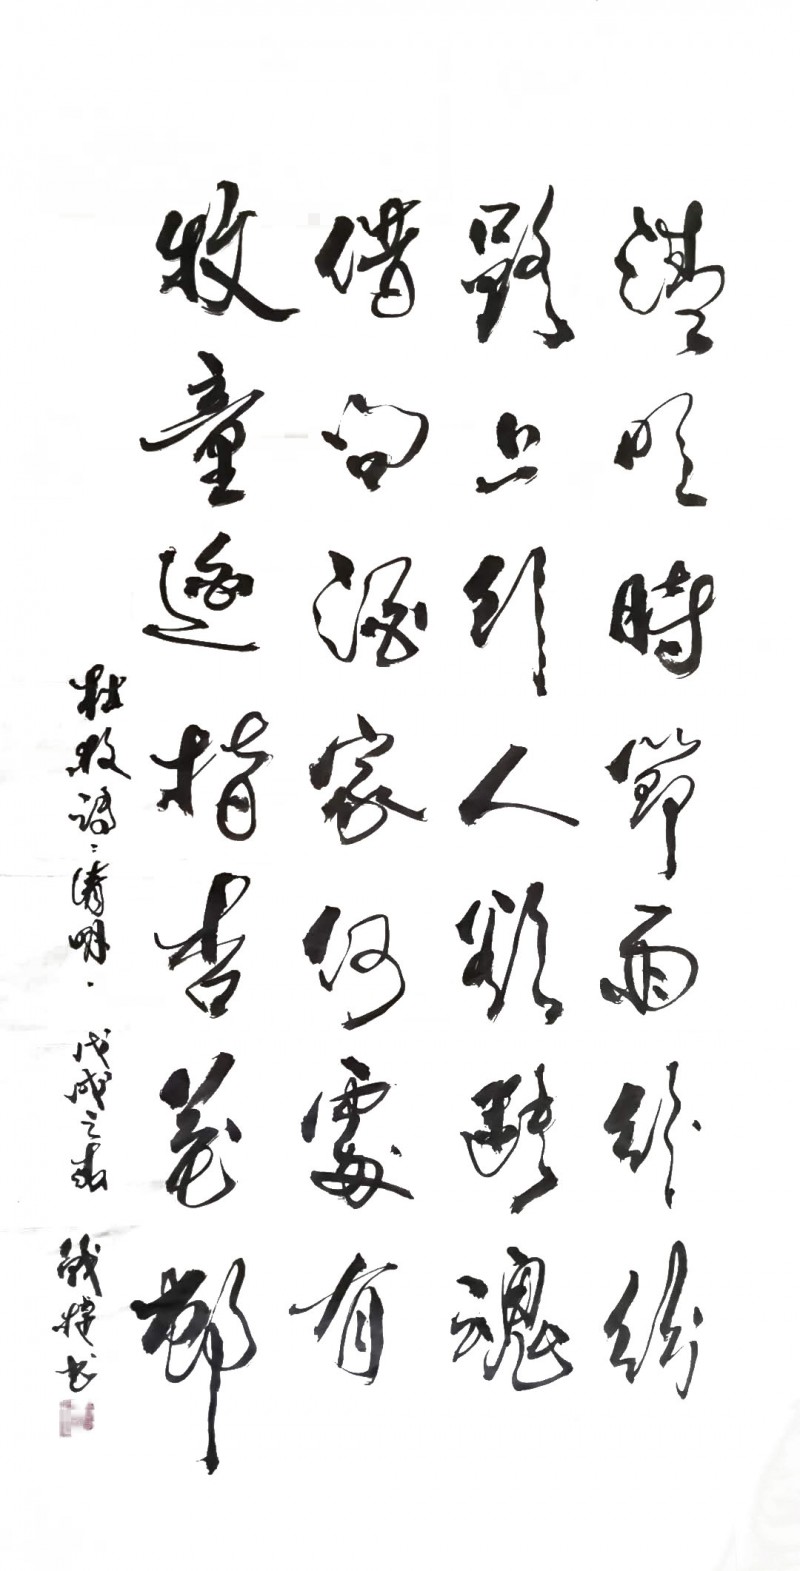 清明時節雨紛紛
路上行人欲斷魂
借问酒家何處有
牧童遥指杏花邨
杜牧诗：清明． 戊戌之春 书